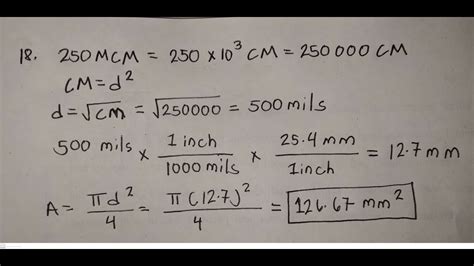 18. 250 MCM = 250 x 10³ CM = 250 000 CM
CM = d²
d = √cm = √250000 = 500 mils
500 mils x 1 inch / 1000 mils x 25.4 mm / 1 inch = 12.7 mm
A = πd² / 4 = π(12.7)² / 4 = 126.67 mm²